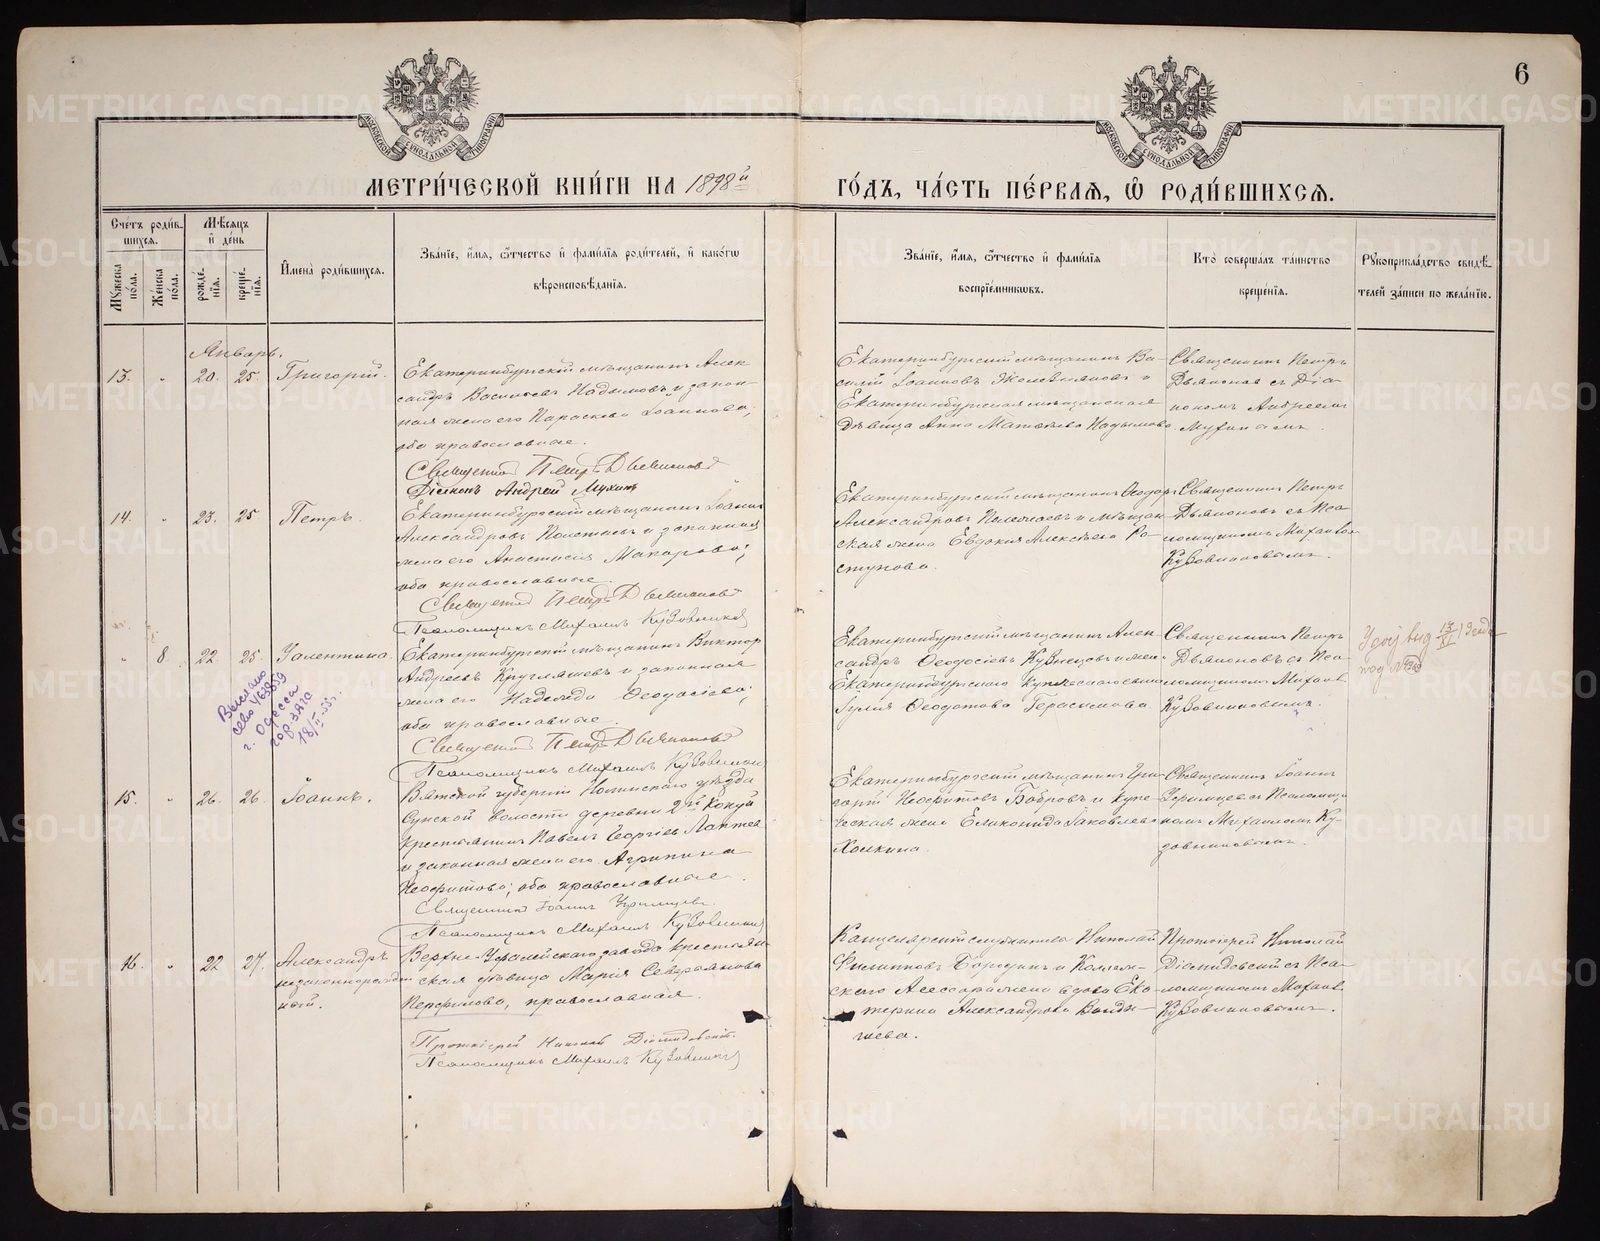 6
МОСКОВСКОЙ СѴНОДАЛЬНОЙ ТИПОГРАФІИ
МОСКОВСКОЙ СѴНОДАЛЬНОЙ ТИПОГРАФІИ
МЕТРИ́ЧЕСКОЙ КНИ́ГИ НА 1898й
ГО́ДЪ, ЧА́СТЬ ПЕ́РВАЯ, Ѡ РОДИ́ВШИХСЯ.
Сче́тъ роди́в-
шихся.
Мꙋ́жеска по́ла.
Же́нска по́ла.
Мѣ́сяцъ
и де́нь
рожде́-
нїя.
креще́-
нїя.
Имена̀ роди́вшихся.
Зва́нїе, и́мя, ѻ́тчество и фами́лїя роди́телей, и како́гѡ
вѣроисповѣ́данїя.
Зва́нїе, и́мя, ѻ́тчество и фами́лїя
воспрїе́мникѡвъ.
Кто̀ соверша́лъ та́инство
креще́нїя.
Рꙋкоприкла́дство свидѣ́-
телей за́писи по жела́нїю.
Январь.
13. " 20. 25. Григорій.
Екатеринбургскій мѣщанинъ Алек
сандръ Васильевъ Надымовъ и закон-
ная жена его Параскева Іоаннова;
оба православные.
Священникъ Петръ Дьяконовъ
Діаконъ Андрей Мухинъ
Екатеринбургскій мѣщанинъ Ва-
силій Іоанновъ Желевляновъ и
Екатеринбургская мѣщанская
дѣвица Анна Матвѣева Надымова
Священникъ Петръ
Дьяконовъ съ Діа-
кономъ Андреемъ
Мухинымъ.
14. " 23. 25 Петръ.
Екатеринбургскій мѣщанинъ Іоаннъ
Александровъ Полетаевъ и законная
жена его Анастасія Макарова;
оба православные.
Священникъ Петръ Дьяконовъ
Псаломщикъ Михаилъ Кузовниковъ
Екатеринбургскій мѣщанинъ Ѳеодоръ
Александровъ Полетаевъ и мѣщан
ская жена Евдокія Алексѣева Ра-
ступова.
Священникъ Петръ
Дьяконовъ съ Пса-
ломщикомъ Михаиломъ
Кузовниковымъ.
" 8. 22. 25. Валентина.
Екатеринбургскій мѣщанинъ Викторъ
Андреевъ Кругляшевъ и законная
жена его Надежда Ѳеодосіева;
оба православные.
Священникъ Петръ Дьяконовъ
Псаломщикъ Михаилъ Кузовниковъ
Екатеринбургскій мѣщанинъ Алек-
сандръ Ѳеодосіевъ Кузнецовъ и жена
Екатеринбургскаго купеческаго сына
Юлія Ѳеодотова Герасимова.
Священникъ Петръ
Дьяконовъ съ Пса-
ломщикомъ Михаил.
Кузовниковымъ.
Выслано
г. Одесса
гор. ЗАГС
18/II-55 г.
15. " 26. 26. Іоаннъ.
Вятской губерніи Нолинскаго уѣзда
Сунской волости деревни 2й Кокуй
крестьянинъ Павелъ Георгіевъ Лаптевъ
и законная жена его Агрипина
Неофитова; оба православные.
Священникъ Іоаннъ
Псаломщикъ Михаилъ Кузовниковъ
Екатеринбургскій мѣщанинъ Гри-
горій Неофитовъ Бобровъ и купе-
ческая жена Еликонида Іаковлева
Холкина.
Священникъ Іоаннъ
съ Псаломщи-
комъ Михаиломъ Ку-
зовниковымъ.
16. " 22 27. Александръ
незаконнорожден
ный.
Верхне-Уфалейскаго завода крестьян-
ская дѣвица Марія Севастьянова
Перфилова, православная.
Протоіерей Николай Діомидовскій
Псаломщикъ Михаилъ Кузовниковъ
Канцелярскій служитель Николай
Филипповъ Бородинъ и Коллеж-
скаго Ассесора жена вдова Ека-
терина Александрова
Протоіерей Николай
Діомидовскій съ Пса-
ломщикомъ Михаил.
Кузовниковымъ.
METRIKI.GASO-URAL.RU